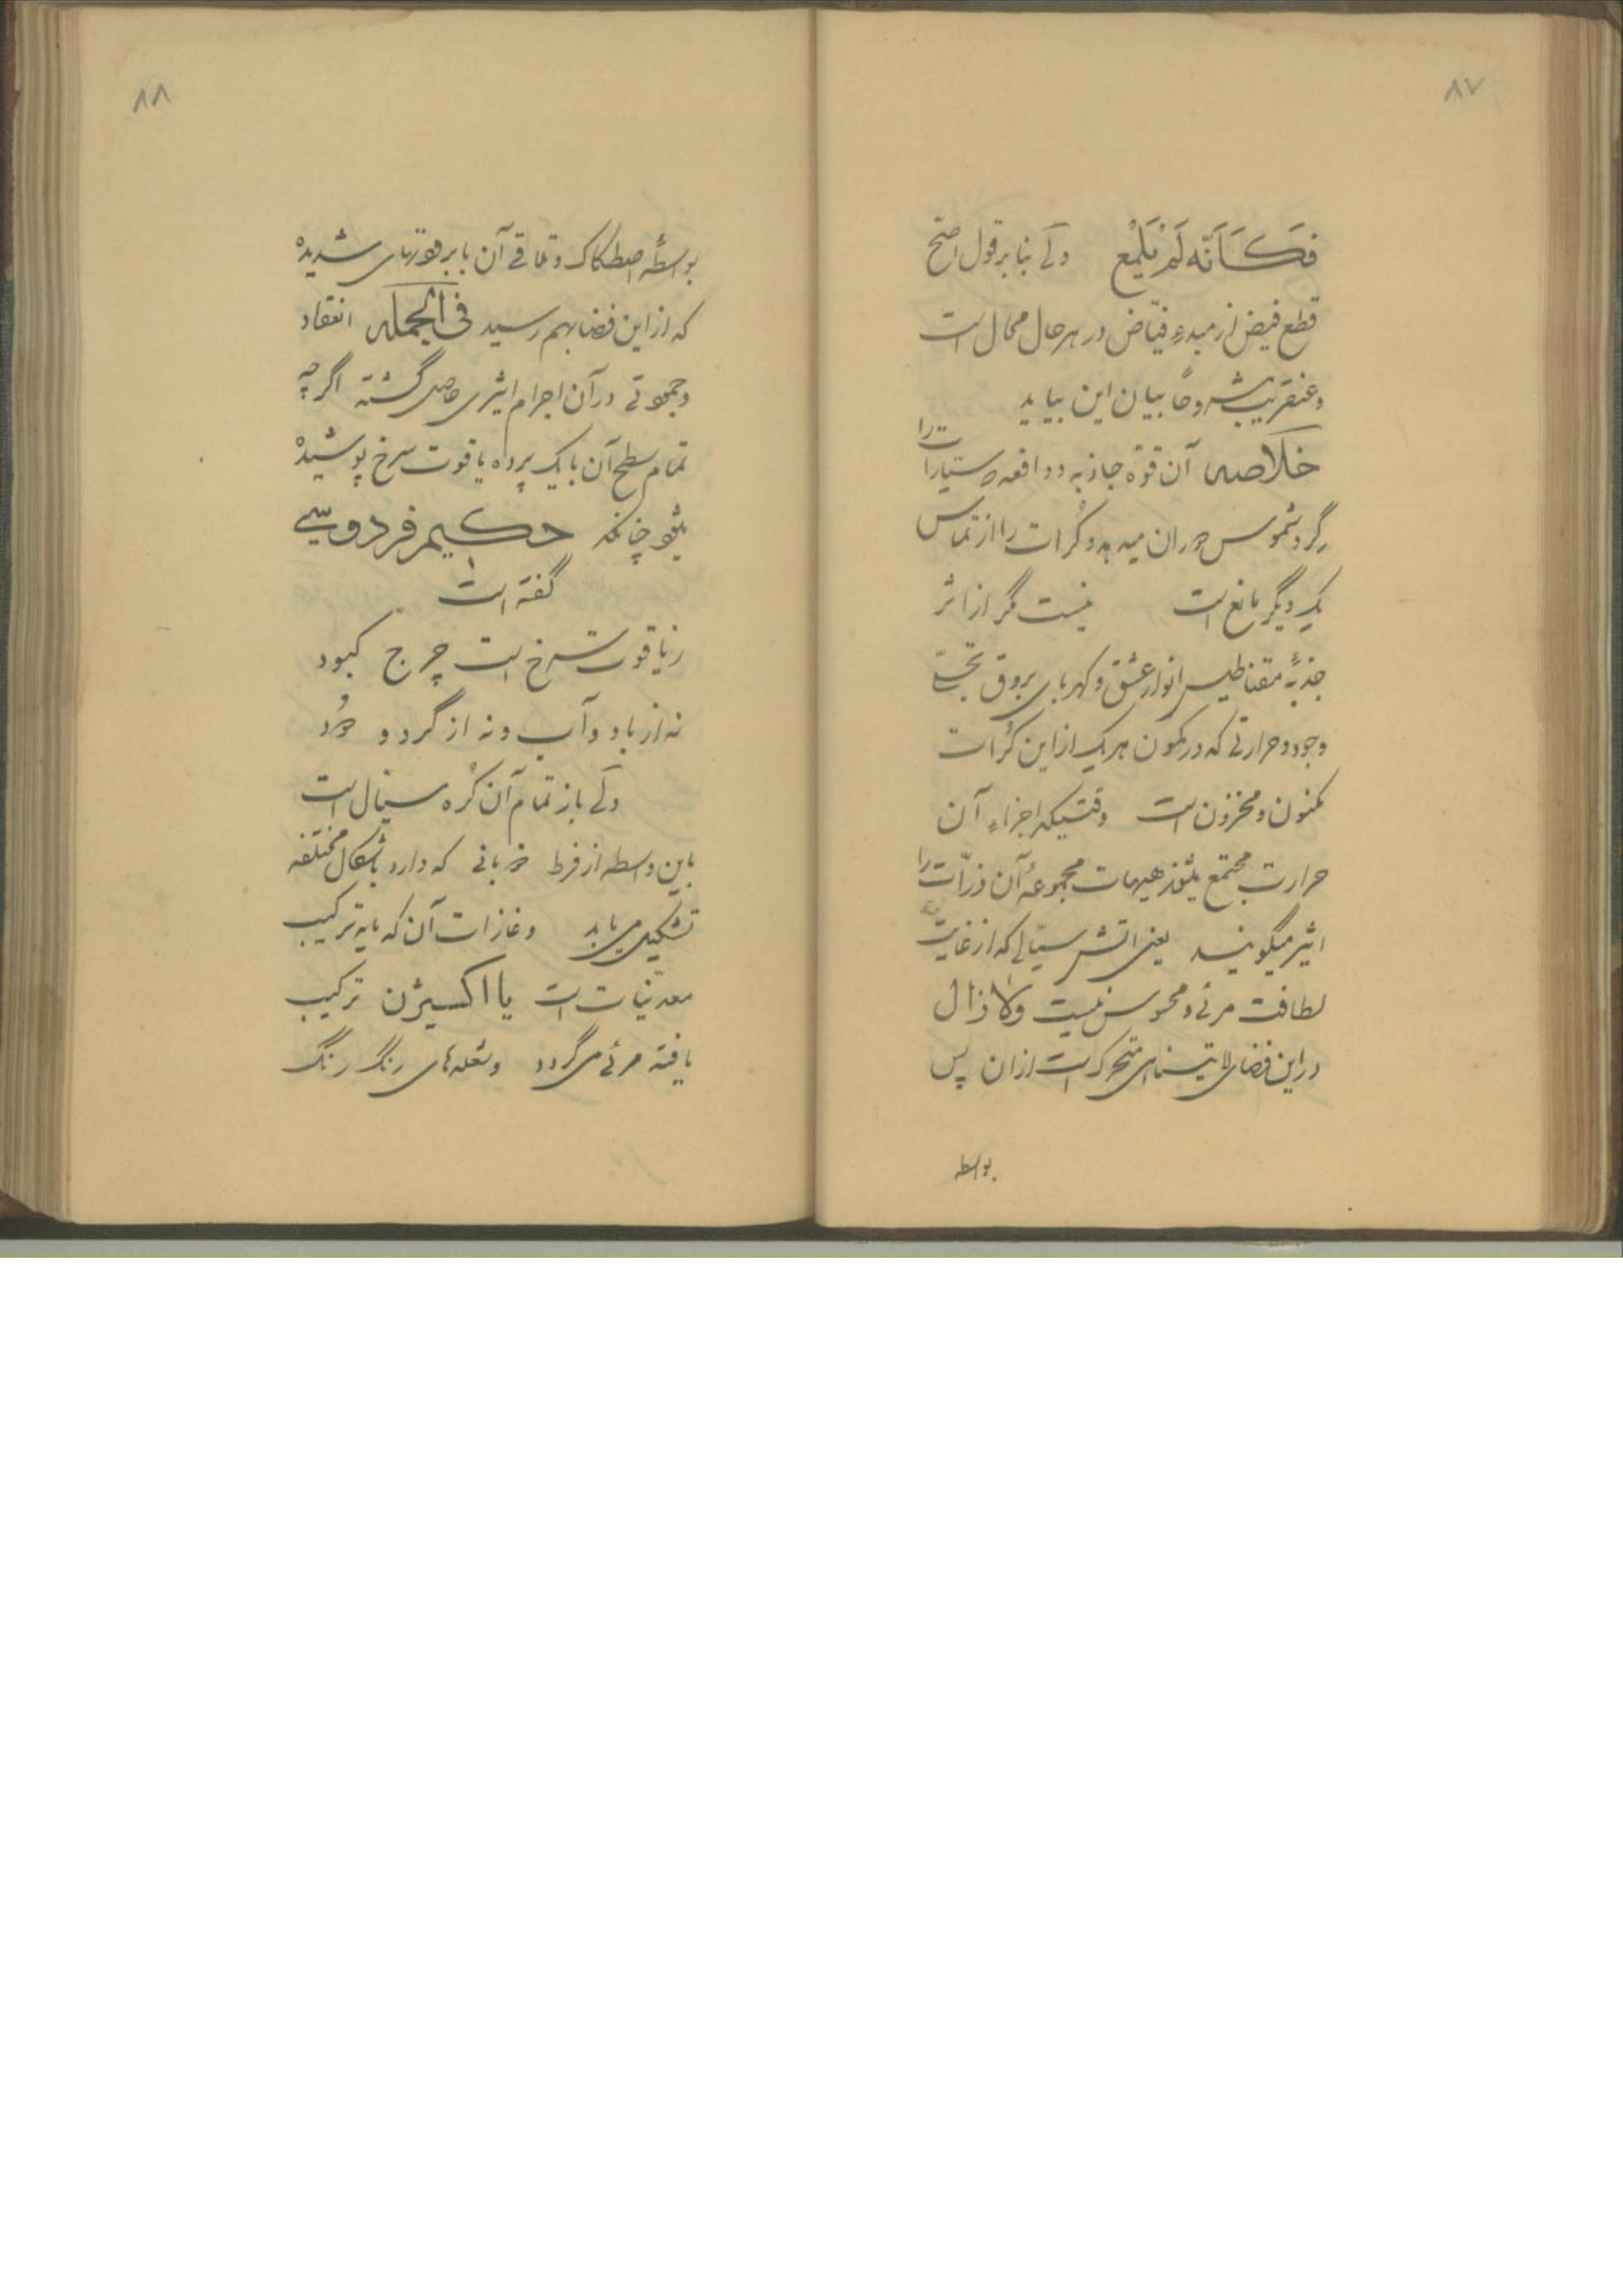 ۸۷
فَکَاَنَّه لَمْ یَلْمَع ولی بنا بر قول اصح
قطع فیض از مبدءِ فیّاض در هر حال محال است
و عنقریب مشروحاً بیان این بیاید
خلاصه آن قوّه جاذبه و دافعه که سیّارات را
گرد شموس دوران میدهد و کُرات را از تماس
یک دیگر مانع است نیست مگر از اثر
جذبهٔ مقناطیس انوار عشق و کهربای بروق تجلّی
وجود و حرارتی که در کمون هر یک از این کُرات
مکنون و مخزون است وقتیکه اجزاءِ آن
حرارت مجتمع بشود هیهات مجموعهٔ آن ذرّات را
اثیر میگویند یعنی اتش سیّالی که از غایت
لطافت مرئی و محسوس نیست ولا زال
در این فضای لایتنهای متحرک است ازان پس
بواسطه
۸۸
بواسطهٔ اصطکاک و تلاقی آن با برودتهای شدیدهٔ
که از این فضا بهم رسید فی الجمله انعقاد
و جمودتی در آن اجرام اثیری حاصل گشته اگر چه
تمام سطح آن با یک پرده یاقوت سرخ پوشیدهٔ
بشود چنانکه حکیم فردوسی
گفته است
ز یاقوت سرخ است چرخ کبود
نه از باد و آب و نه از گرد و دُود
ولی باز تمام آن کُره سیّال است
باین واسطه از فرط ذوبانی که دارد باشکال مختلفه
تشکیل می یابد و غازات آن که مایه ترکیب
معدنیّات است با اکسیژن ترکیب
یافته مرئی می گردد و شعله های رنگ رنگ